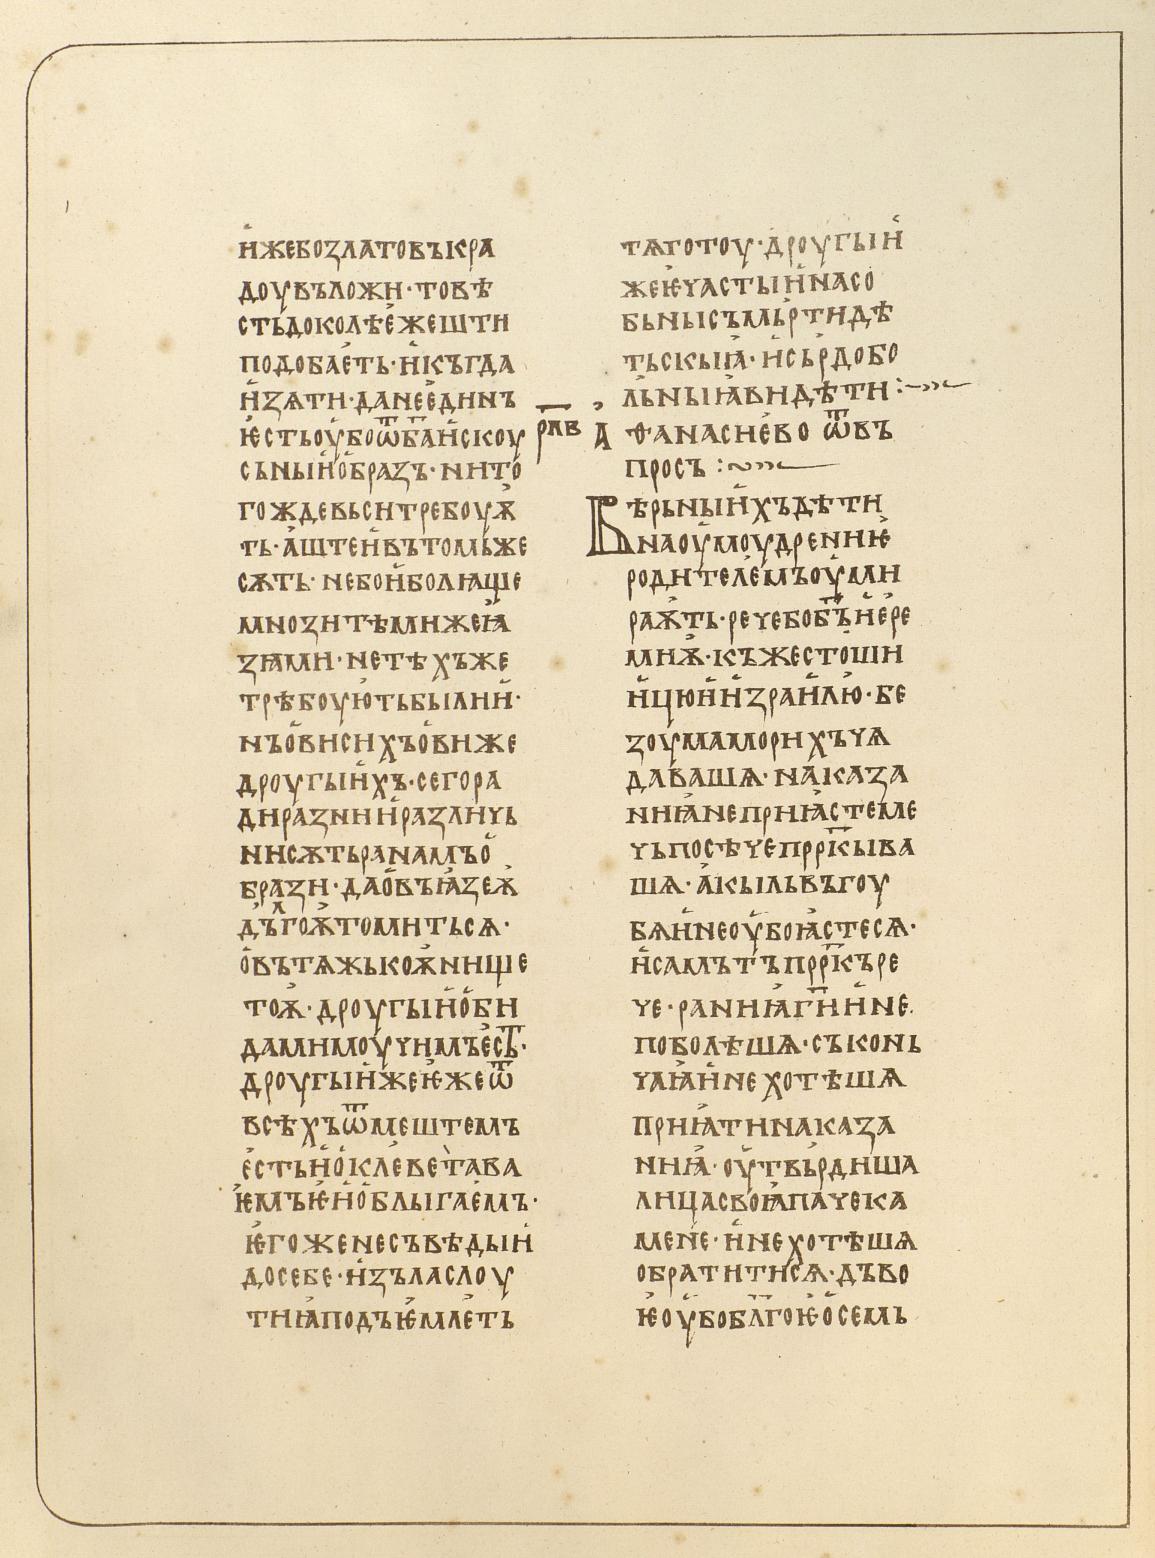 и҆жебозлатовъкра
доувъложи·товѣ
сть҆доколѣе҆жешти
подобае҆ть·и҆къгда
и҆зѧти·данеѥ҆динъ
ѥ҆стьоу҆боѿба҆и҆скоу
сьныи҆о҆бразъ·нито҆
гождевьситребоуѭ҆
ть·а҆штеи҆вътомь҆же
сѫть·небои҆болꙗще
мнозитѣмижеꙗ҆
зꙗми·нетѣхъже
трѣбоую҆тьбылии҆·
нъо҆висихъо҆виже
дроугыи҆хъ·сегора
дира҆знии҆разлиуь
нисѫтьранамъо҆
брази·дао҆въꙗ҆зеѭ҆
дъ҆лгоѭ҆томитьсѧ·
о҆вътѧжькоѭ҆нище
тоѭ҆·дроугыи҆о҆би
дамимоу҆уимъе҆стъ·
дроугыи҆жеѥ҆жеѿ
всѣхъѿмештемъ
е҆стьи҆о҆клѐветава
ѥ҆мъѥ҆и҆о҆блыгае҆мъ·
ѥ҆гоженесъвѣдыи҆
досебе·и҆зъласлоу
тиꙗ҆подъѥ҆млѥ҆ть
тѧготоу·дроугыи҆
жеѥ҆уастыи҆насо
бьнысъмь҆ртидѣ
тьскыꙗ҆·и҆сь҆рдобо
льныꙗ҆видѣти:~
рлв
а҆ѳанасие҆во ѿвъ
просъ:~
Вѣрьныи҆хъдѣти
наоу҆моудрениѥ҆
родителе҆мъоу҆ми
раѭ҆ть·реуебобъ҃и҆е҆ре
миѭ҆·къжесто҆ши
и҆цюи҆и҆зраи҆лю҆·бе
зоу҆маморихъуѧ
дава҆шѧ·на҆каза
ниꙗ҆неприꙗ҆стеме
уьпосѣуепррк҃ыва
шѧ·а҆кыльвъгоу
бѧи҆неоу҆боꙗ҆стесѧ·
и҆самътъпррк҃ъре
уе·раниꙗ҆ги҃и҆не.
поболѣшѧ·съконь
уаꙗ҆и҆нехотѣшѧ
приꙗ҆тинаказа
ниꙗ҆·оу҆твь҆рдиша
лицасвоꙗ҆пауека
мене·и҆нехотѣшѧ
обратитисѧ·дъво
ѥоу҆боблг҃оѥ҆о҆семь